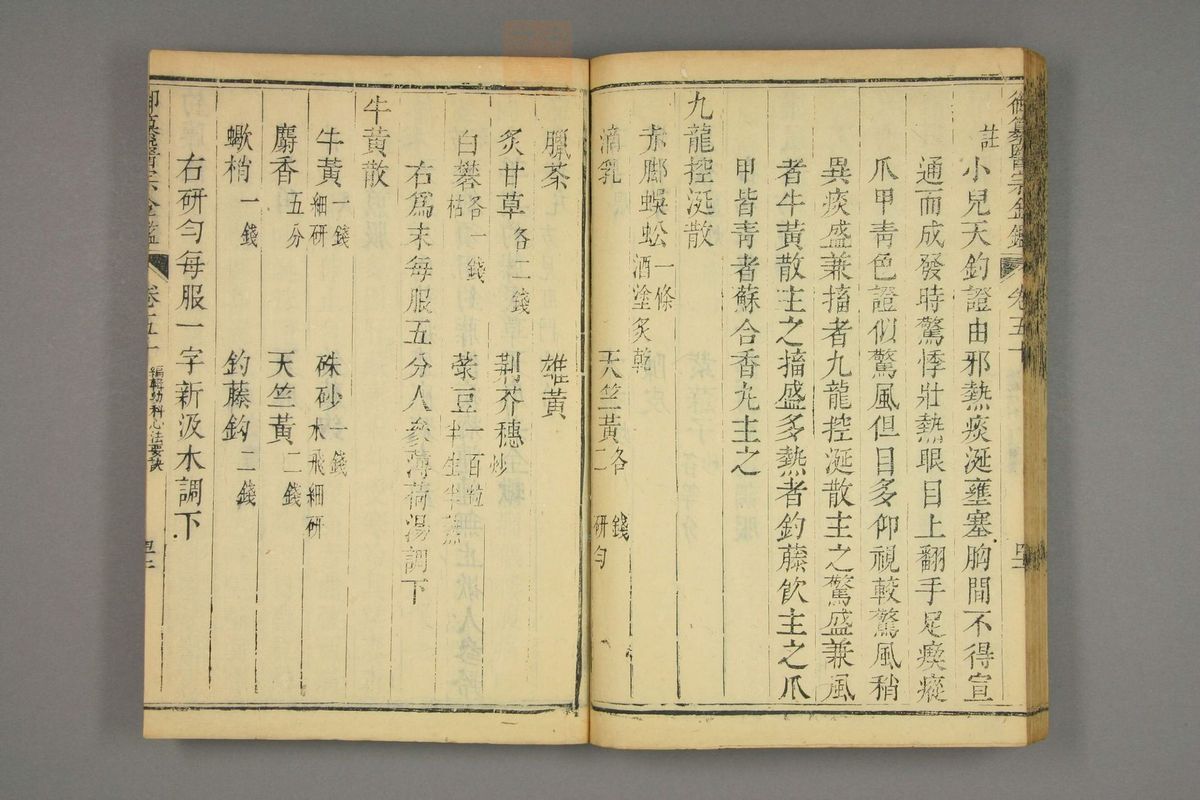 御纂醫宗金鑑
卷五十
註
小兒天釣證由邪熱痰涎壅塞胸間不得宣
通而成發時驚悸壯熱眼目上翻手足瘈瘲
爪甲青色證似驚風但目多仰視較驚風稍
異痰盛兼搐者九龍控涎散主之驚盛兼風
者牛黃散主之搐盛多熱者釣藤飲主之爪
甲皆青者蘇合香丸主之
九龍控涎散
赤脚蜈蚣一條酒塗炙乾
滴乳 天竺黃各二錢研勻
臘茶 雄黃
炙甘草各二錢 荆芥穗炒
白礬枯各一錢 菉豆一百粒半生半熟
右爲末每服五分人參薄荷湯調下
牛黃散
牛黃一錢細研 硃砂一錢水飛細研
麝香五分 天竺黃二錢
蠍梢一錢 釣藤鈎二錢
右研勻每服一字新汲水調下
編輯幼科心法要訣